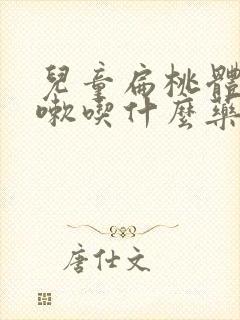 兒童扁桃體
嗽喫什麼藥
唐仕文